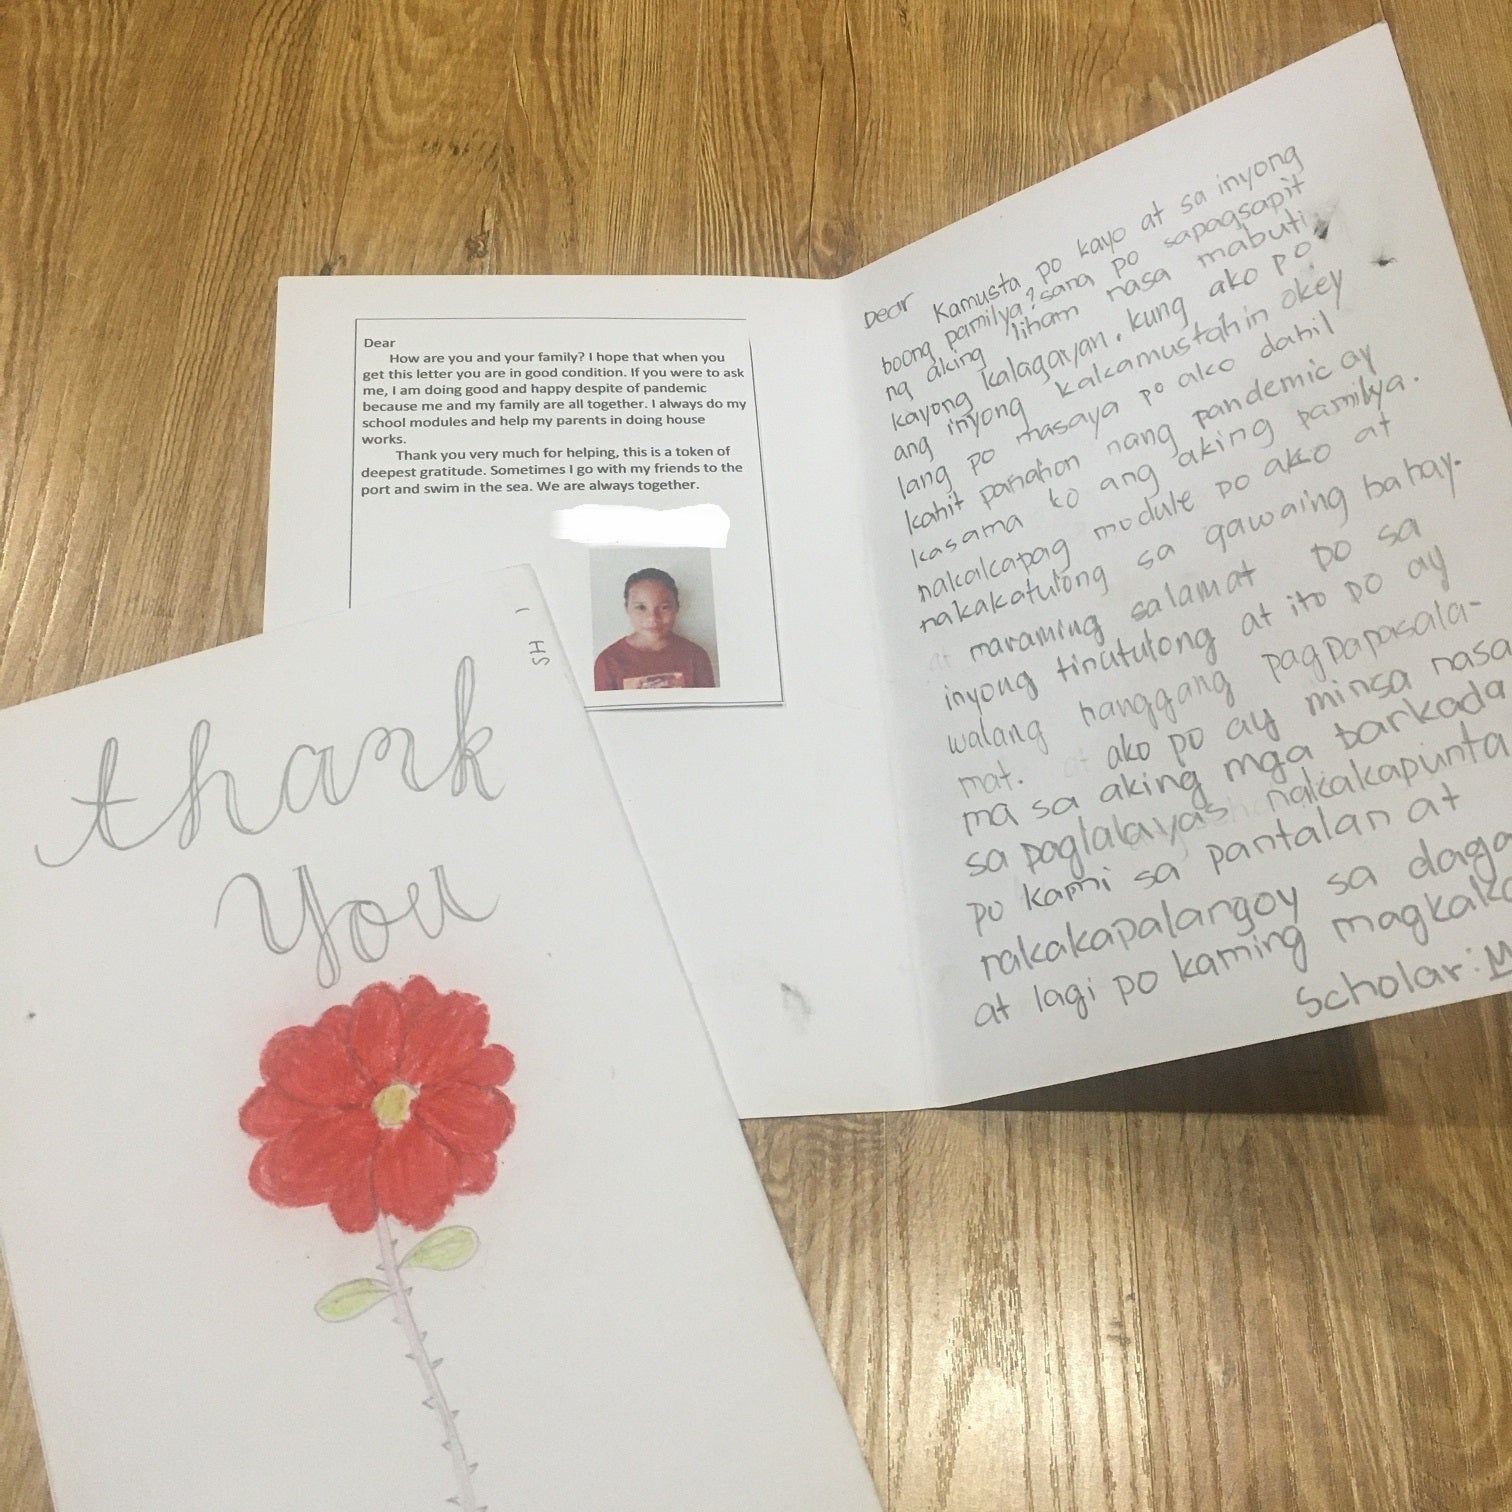 Dear
How are you and your family? I hope that when you
get this letter you are in good condition. If you were to ask
me, I am doing good and happy despite of pandemic
because me and my family are all together. I always do my
school modules and help my parents in doing house
works.
Thank you very much for helping, this is a token of
deepest gratitude. Sometimes I go with my friends to the
port and swim in the sea. We are always together.
Dear Kamusta po kayo at sa inyong
boong pamilya? sana po sapagsapit
ng aking liham nasa mabuti
kayong kalagayan. kung ako po
ang inyong kakamustahin okey
lang po masaya po ako dahil
kahit panahon nang pandemic ay
kasama ko ang aking pamilya.
nakakapag module po ako at
nakakatulong sa gawaing bahay.
maraming salamat po sa
inyong tinutulong at ito po ay
walang hanggang pagpapasala-
mat. ako po ay minsa nasa
ma sa aking mga barkada
sa paglalayas nakakapunta
po kami sa pantalan at
nakakapalangoy sa
at lagi po kaming
Scholar: M
I HS
thank
you